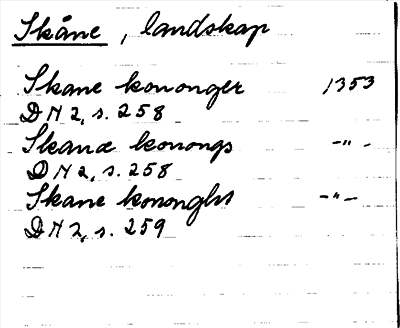 Skåne, landskap
Skane kononger 1353
DN 2, s. 258
Skanæ konongs -"-
DN 2, s. 258
Skane kononghs -"-
DN 2, s. 259